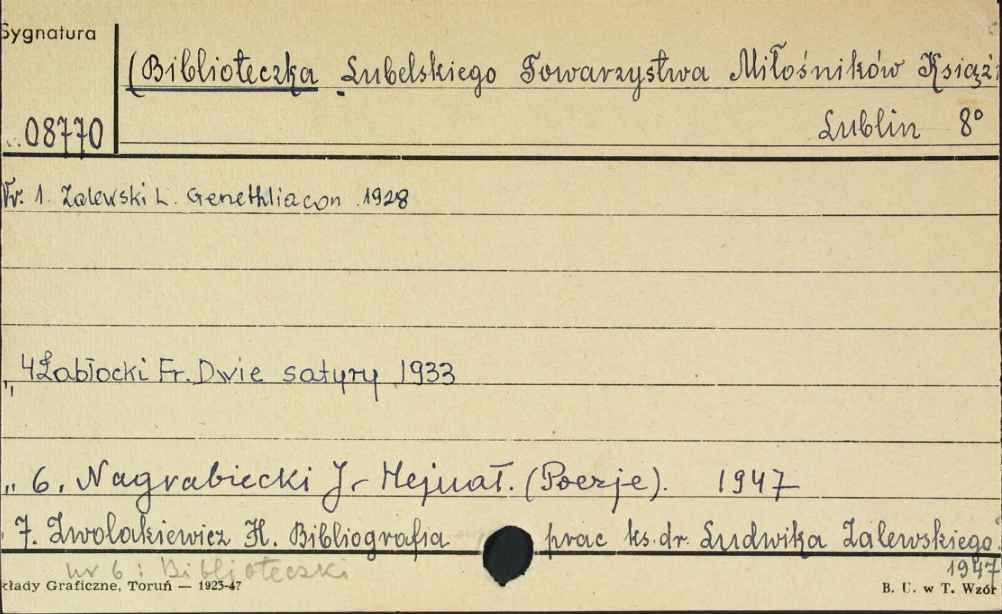 Sygnatura
(Biblioteczka Lubelskiego Towarzystwa Miłośników Książ
08770 Lublin 8°
Nr. 1. Zalewski L. Genethliacon 1928
„ 4 Zabłocki Fr. Dwie satyry 1933
„ 6. Nagrabiecki J. - Hejnał. (Poezje). 1947
7. Zwolakiewicz H. Bibliografia prac ks. dr. Ludwika Zalewskiego.
1947
nr 6 : Biblioteczki
kłady Graficzne, Toruń — 1923-47
B. U. w T. Wzór